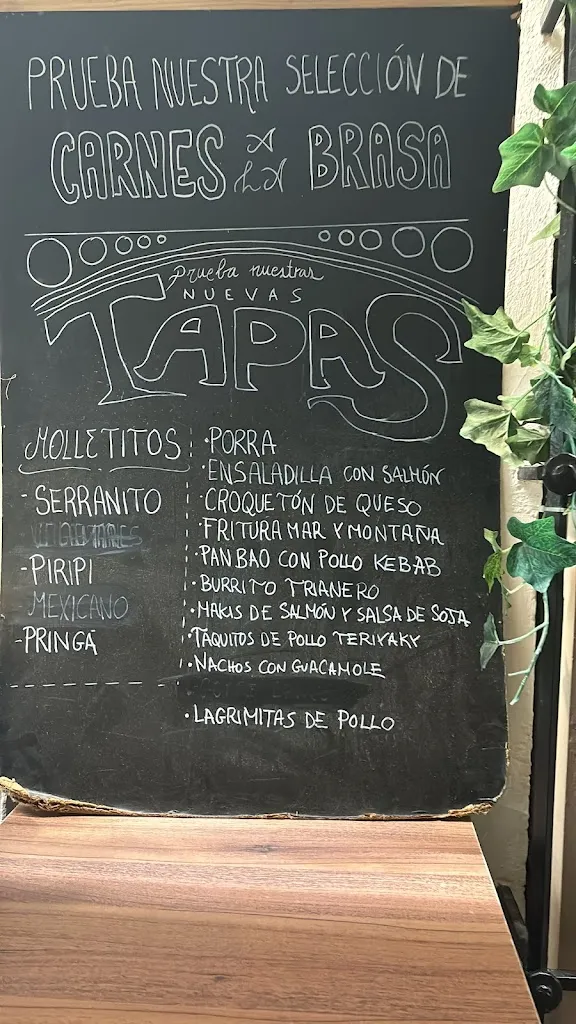 PRUEBA NUESTRA SELECCIÓN DE
CARNES A LA BRASA
Prueba nuestras
NUEVAS
TAPAS
MOLLETITOS
- SERRANITO
- PIRIPI
MEXICANO
- PRINGÁ
· PORRA
· ENSALADILLA CON SALMÓN
· CROQUETÓN DE QUESO
· FRITURA MAR Y MONTAÑA
· PAN BAO CON POLLO KEBAB
· BURRITO TRIANERO
· MAKIS DE SALMÓN Y SALSA DE SOJA
· TAQUITOS DE POLLO TERIYAKY
· NACHOS CON GUACAMOLE
· LAGRIMITAS DE POLLO